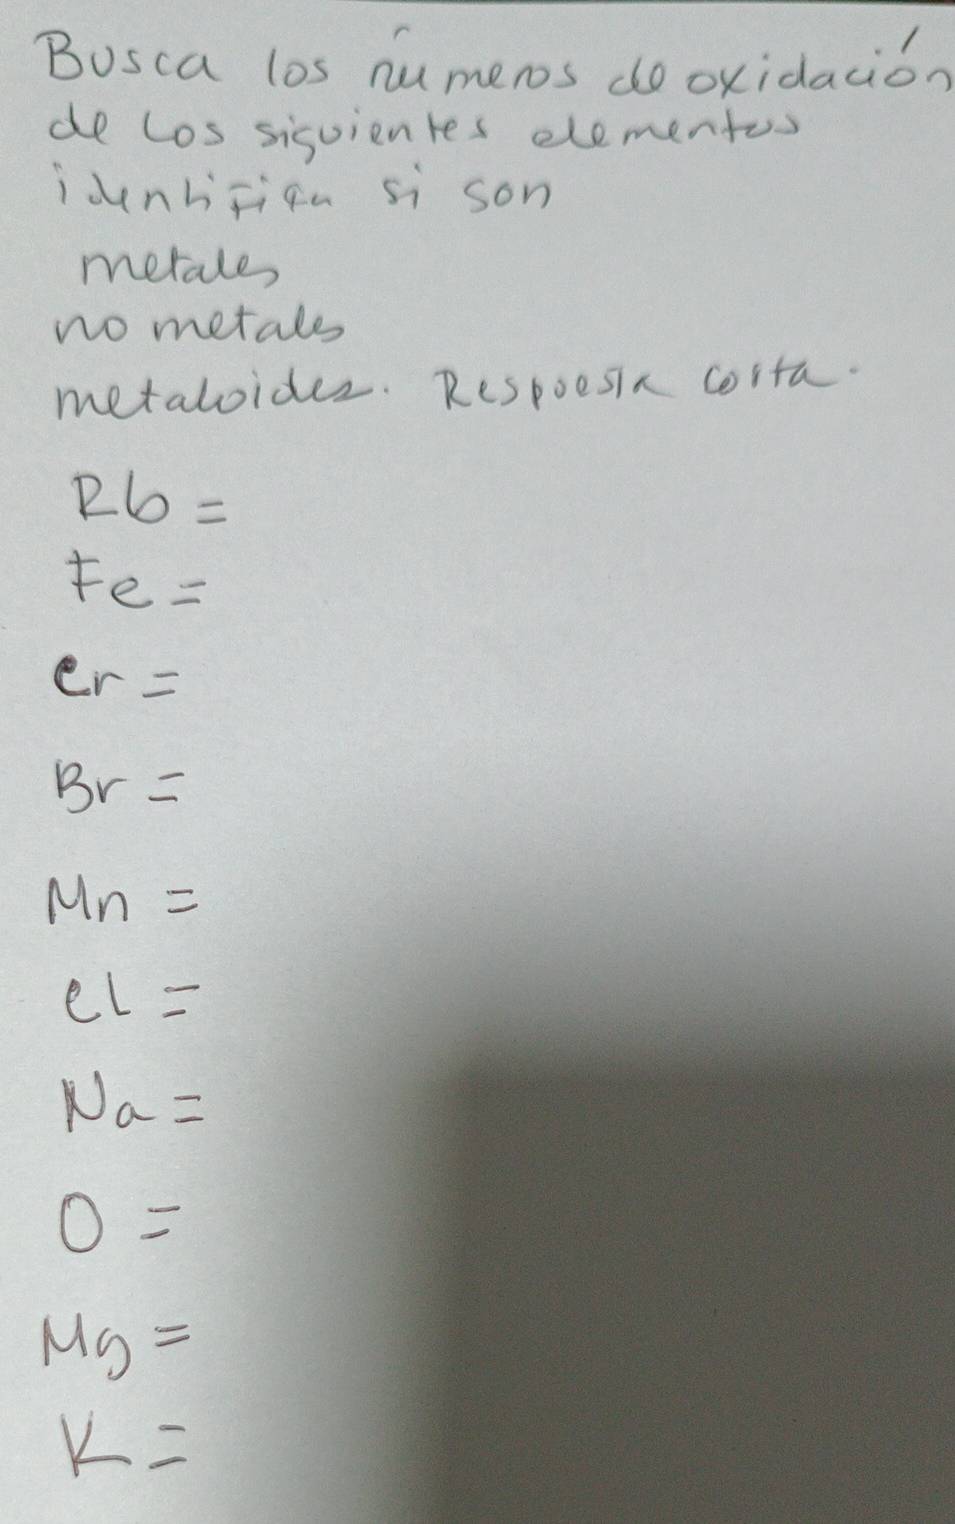 Busca los números de oxidación
de los siguientes elementos
identifica si son
metales
no metales
metaloides. Respuesta corta.
Rb =
Fe =
Cr =
Br =
Mn =
Cl =
Na =
O =
Mg =
K =